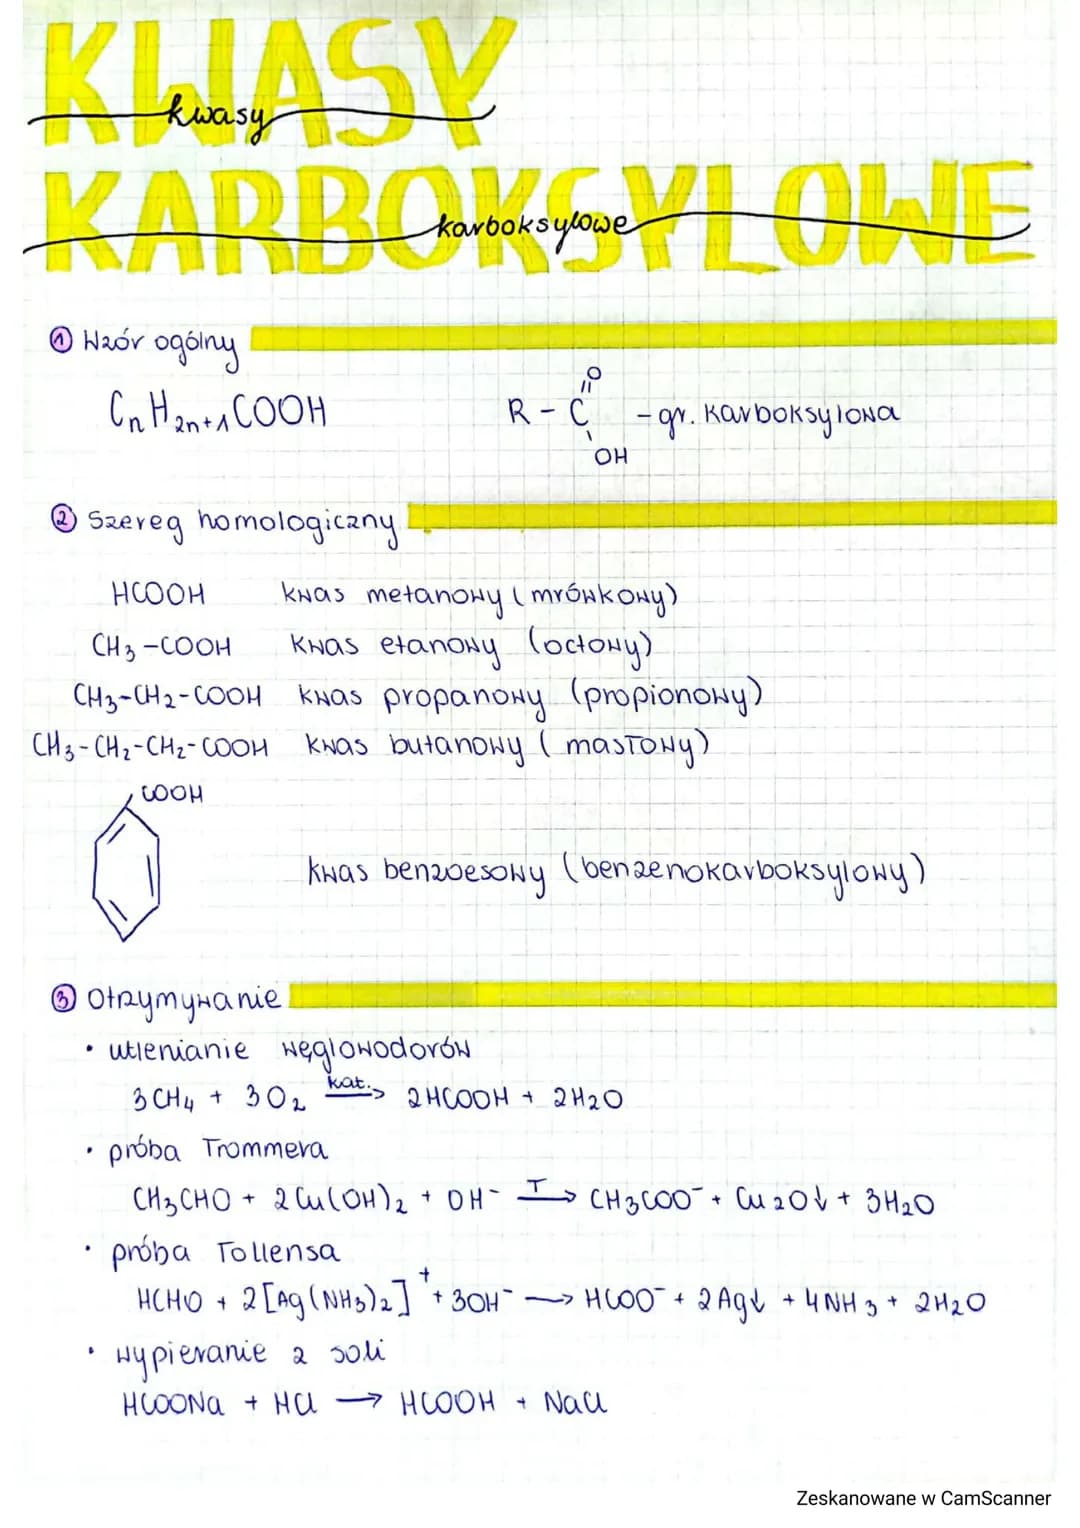 KWASY
kwasy
KARBOKSYLOWE
karboksylowe
① Wzór ogólny
CnH2n+1COOH
R - C =O - gr. karboksylowa
OH
② Szereg homologiczny
HCOOH kwas metanowy (mrówkowy)
CH3-COOH kwas etanowy (octowy)
CH3-CH2-COOH kwas propanowy (propionowy)
CH3-CH2-CH2-COOH kwas butanowy (masłowy)
COOH
kwas benzoesowy (benzenokarboksylowy)
③ Otrzymywanie
• utlenianie węglowodorów
3CH4 + 3O2 kat.→ 2HCOOH + 2H2O
• próba Trommera
CH3CHO + 2Cu(OH)2 + OH⁻ T→ CH3COO⁻ + Cu2O↓ + 3H2O
• próba Tollensa
HCHO + 2[Ag(NH3)2]⁺ + 3OH⁻ → HCOO⁻ + 2Ag↓ + 4NH3 + 2H2O
• wypieranie z soli
HCOONa + HCl → HCOOH + NaCl
Zeskanowane w CamScanner